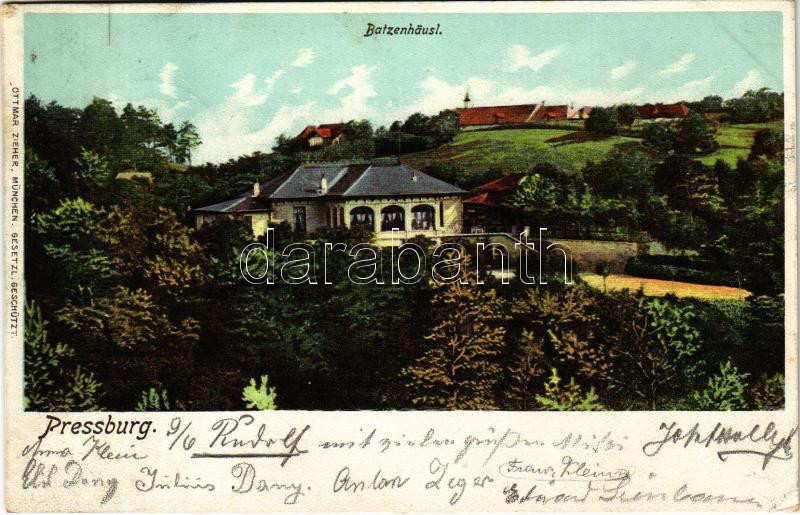 Batzenhäusl.
OTTMAR ZIEHER, MÜNCHEN. GESETZL. GESCHÜTZT.
darabanth
Pressburg. 9/6 Rudolf mit vielen grüßen
Anna Klein Franz Klein
Julius Dany. Anton Zeger